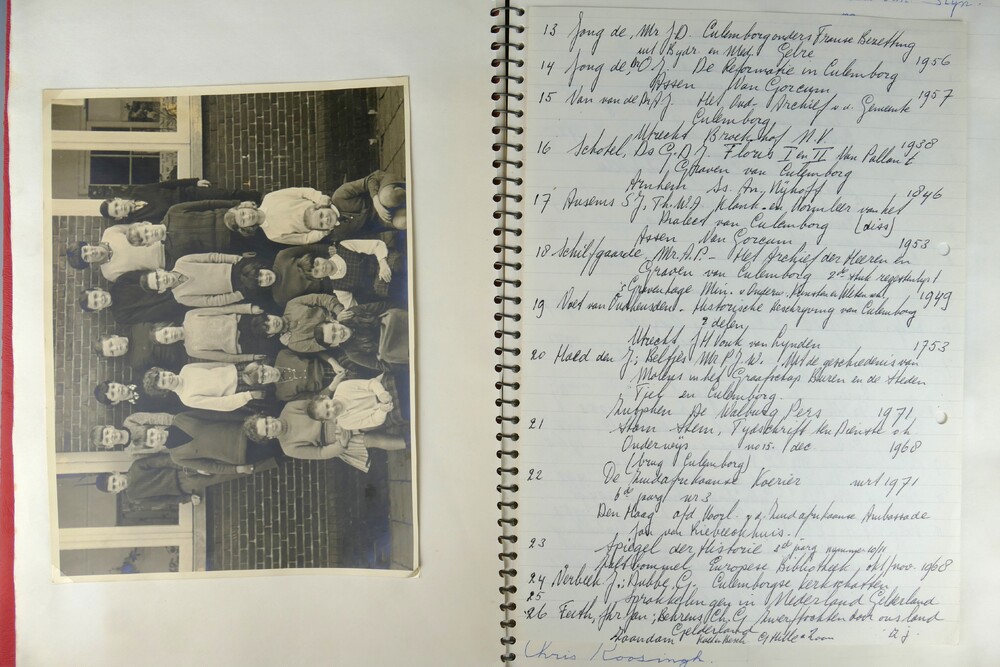 13 Jong de, Mr J.D. Culemborg onder Franse Bezetting
uit Bydr. en Med. Gelre 1956
14 Jong de, Dr O.J. De Reformatie in Culemborg
Assen Van Gorcum 1957
15 Van de Mr A.J. Het Oud Archief v.d. Gemeente
Culemborg
Utrecht Broekhof N.V. 1938
16 Schotel, Ds G.D.J. Floris I en II van Pallant
Graven van Culemborg
Arnhem Is. An. Nijhoff 1846
17 Ausems S.J, Th.W.A. Klank- en Vormleer van het
Dialect van Culemborg (diss)
Assen Van Gorcum 1953
18 Schilfgaarde, Mr. A.P. - Het Archief der Heeren en
Graven van Culemborg 2de stuk regestenlijst
's Gravenhage Min. v Onderw. Kunsten en Wetensch. 1949
19 Voet van Oudheusden. Historische beschryving van Culemborg
2 delen
Utrecht J H Vonk van Lynden 1753
20 Hoed den J; Belfjes Mr P.J.W. Uit de geschiedenis van
Molens in het Graafschap Buren en de steden
Tiel en Culemborg
Zutphen De Walburg Pers 1971
21 Stem, Tydschrift ten Dienste v h
Onderwijs no 15. 1 dec. 1968
(brug Culemborg)
22 De Zuidafrikaanse Koerier mrt 1971
6de jarg nr 3
Den Haag afd Voorl. v d. Zuidafrikaanse Ambassade
Jan van Riebeeckhuis.
23 Spiegel der Historie 3de jarg nummer 10/11
Zaltbommel Europese Bibliotheek, okt/nov. 1968
24 Verbeek J.; Dubbe G., Culemborgse kerkschatten
25 in Nederland Gelderland
26 Feith, Jhr Jan; Behrens Ch. G zwerftochten door ons land
Gelderland
Zaandam G Hille & Zoon z j.
Chris Koosingh.